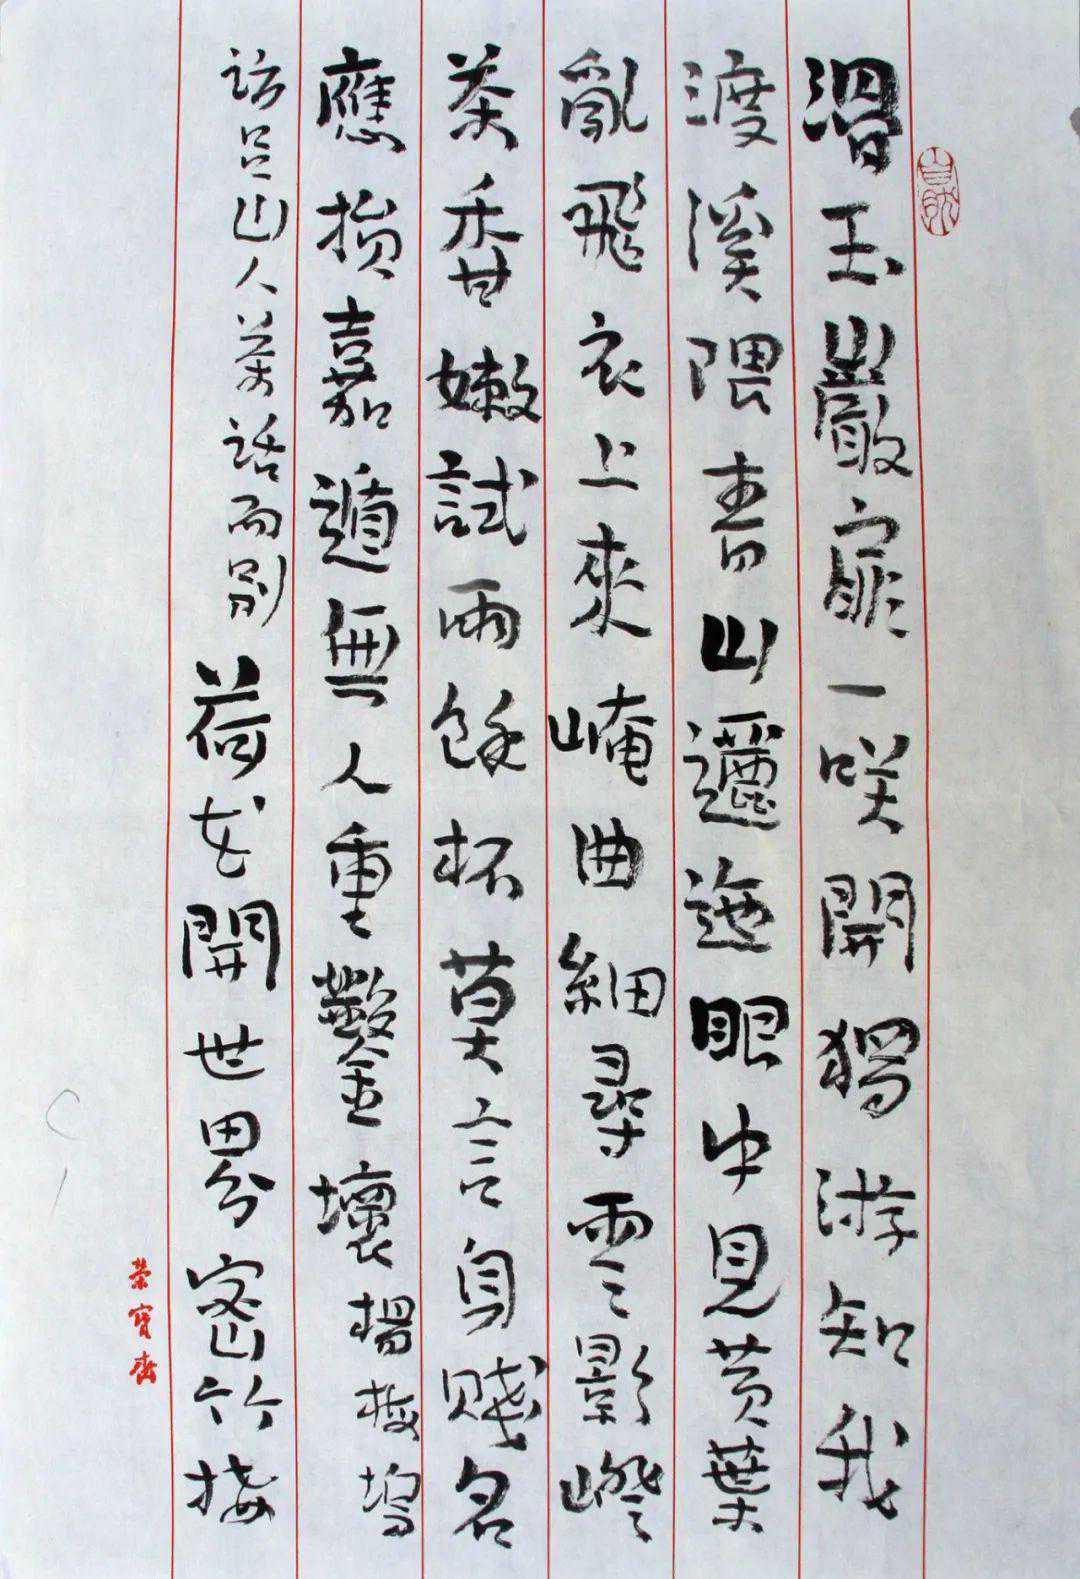 玉巖扉一咲開獨游知我
渡溪隈青山邐迤眼中見黃葉
亂飛衣上來崦曲細尋雲影嶝
茶香嫩試雨餘杯莫言身賤名
應損嘉遁無人重鑿壞楊梅塢
訪呂山人茶話而別荷花開世界密竹接
榮寶齋